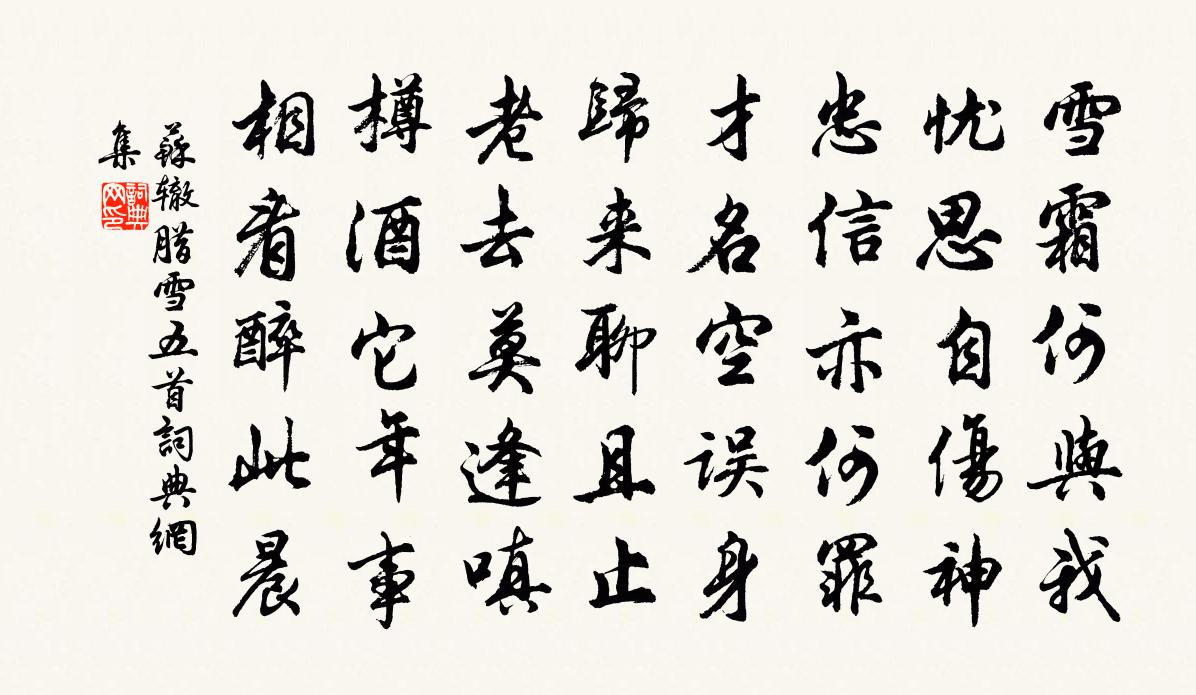 雪霜何與我
忧思自傷神
忠信亦何罪
才名空误身
歸来聊且止
老去莫逢嗔
樽酒它年事
相看醉此晨
蘇辙腊雪五首詞典網
集
詞典
网印